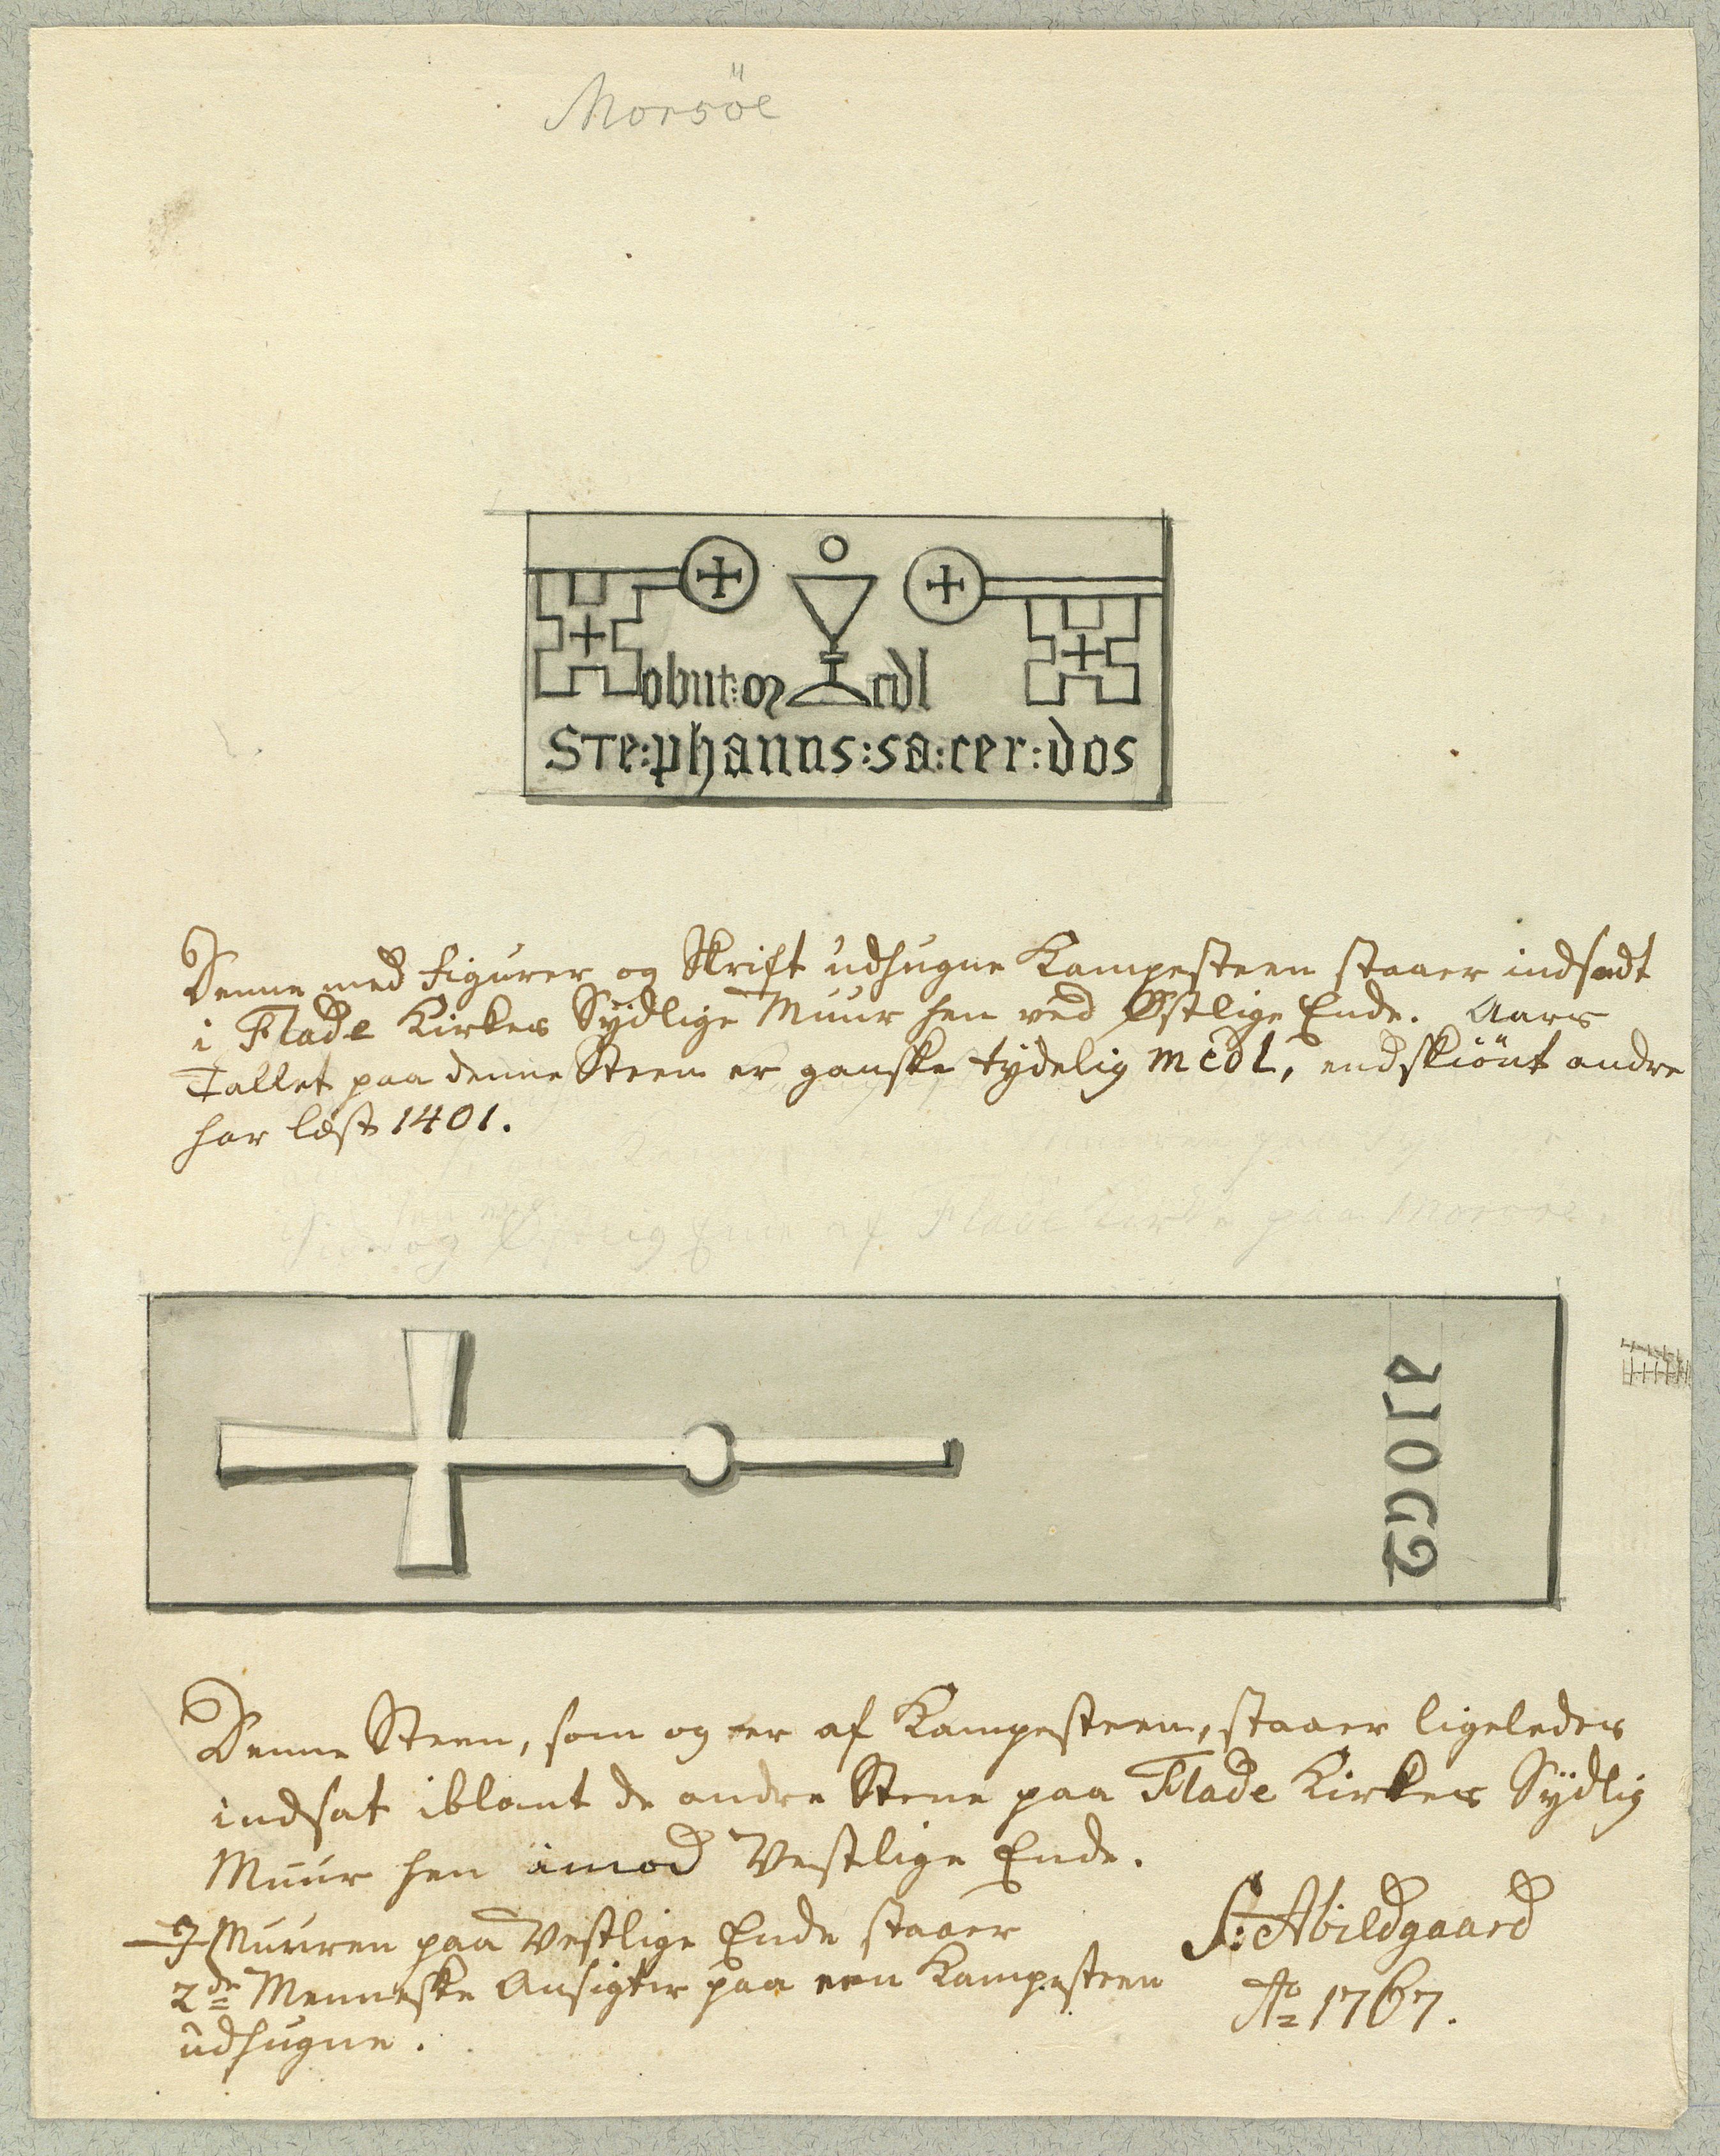 Morsöe
obiit: m cdl
STe:phanus:sa:cer:dos
Denne med figurer og Skrift udhugne Kampesteen staaer indsadt
i Flade Kirkes Sÿdlige Muur hen ved Østlige Ende. Aars
Tallet paa denne Steen er ganske tÿdelig mcdl, endskiönt andre
har læst 1401.
Flade paa
Denne Steen, som og er af Kampesteen, staaer ligeledes
indsat iblant de andre Stene paa Flade Kirkes Sÿdlig
Muur hen imod Vestlige Ende.
I Muuren paa Vestlige Ende staaer
2de Menneske Ansigter paa een Kampesteen
udhugne.
S: Abildgaard
Ao 1767.